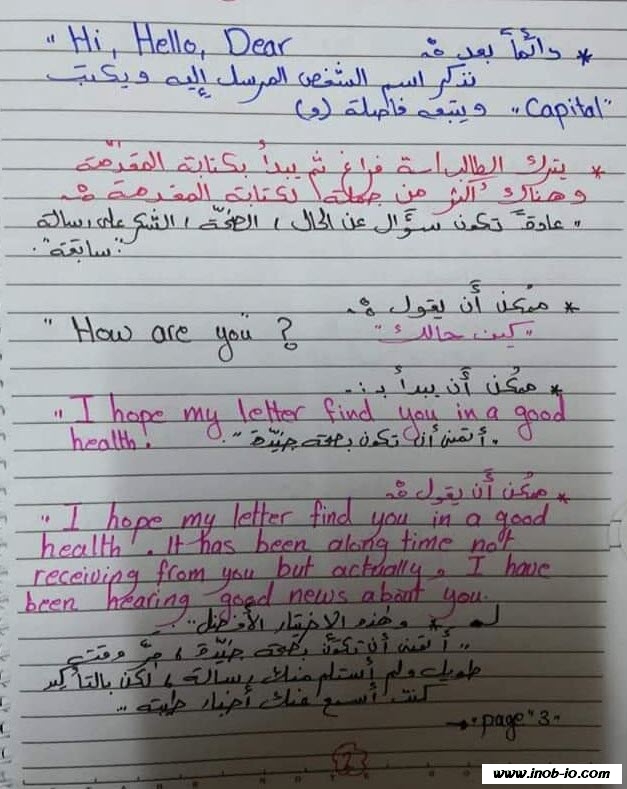 * دائماً بعد :- "Hi, Hello, Dear
نذكر اسم الشخص المرسل إليه ويكتب
"Capital" ويتبعه فاصلة (و)
* يترك الطالب/سة فراغ ثم يبدأ بكتابة المقدمة
وهناك أكثر من جملة لكتابة المقدمة :-
"عادةً تكون سؤال عن الحال، الصحّة، الشكر على رسالة
سابقة".
* ممكن أن يقول :-
" How are you ? "كيف حالك"
* ممكن أن يبدأ بـ :-
" I hope my letter find you in a good
health. "أتمنى أن تكون بصحة جيّدة".
* ممكن أن يقول :-
" I hope my letter find you in a good
health. It has been along time not
receiving from you but actually, I have
been hearing good news about you.
* وهذه الاختيار الأفضل".
"أتمنى أن تكون بصحة جيّدة، مرَّ وقت
طويل ولم أستلم منك رسالة، لكن بالتأكيد
كنت أسمع عنك أخبار طيبة"
→ page "3"
2
www.inob-io.com